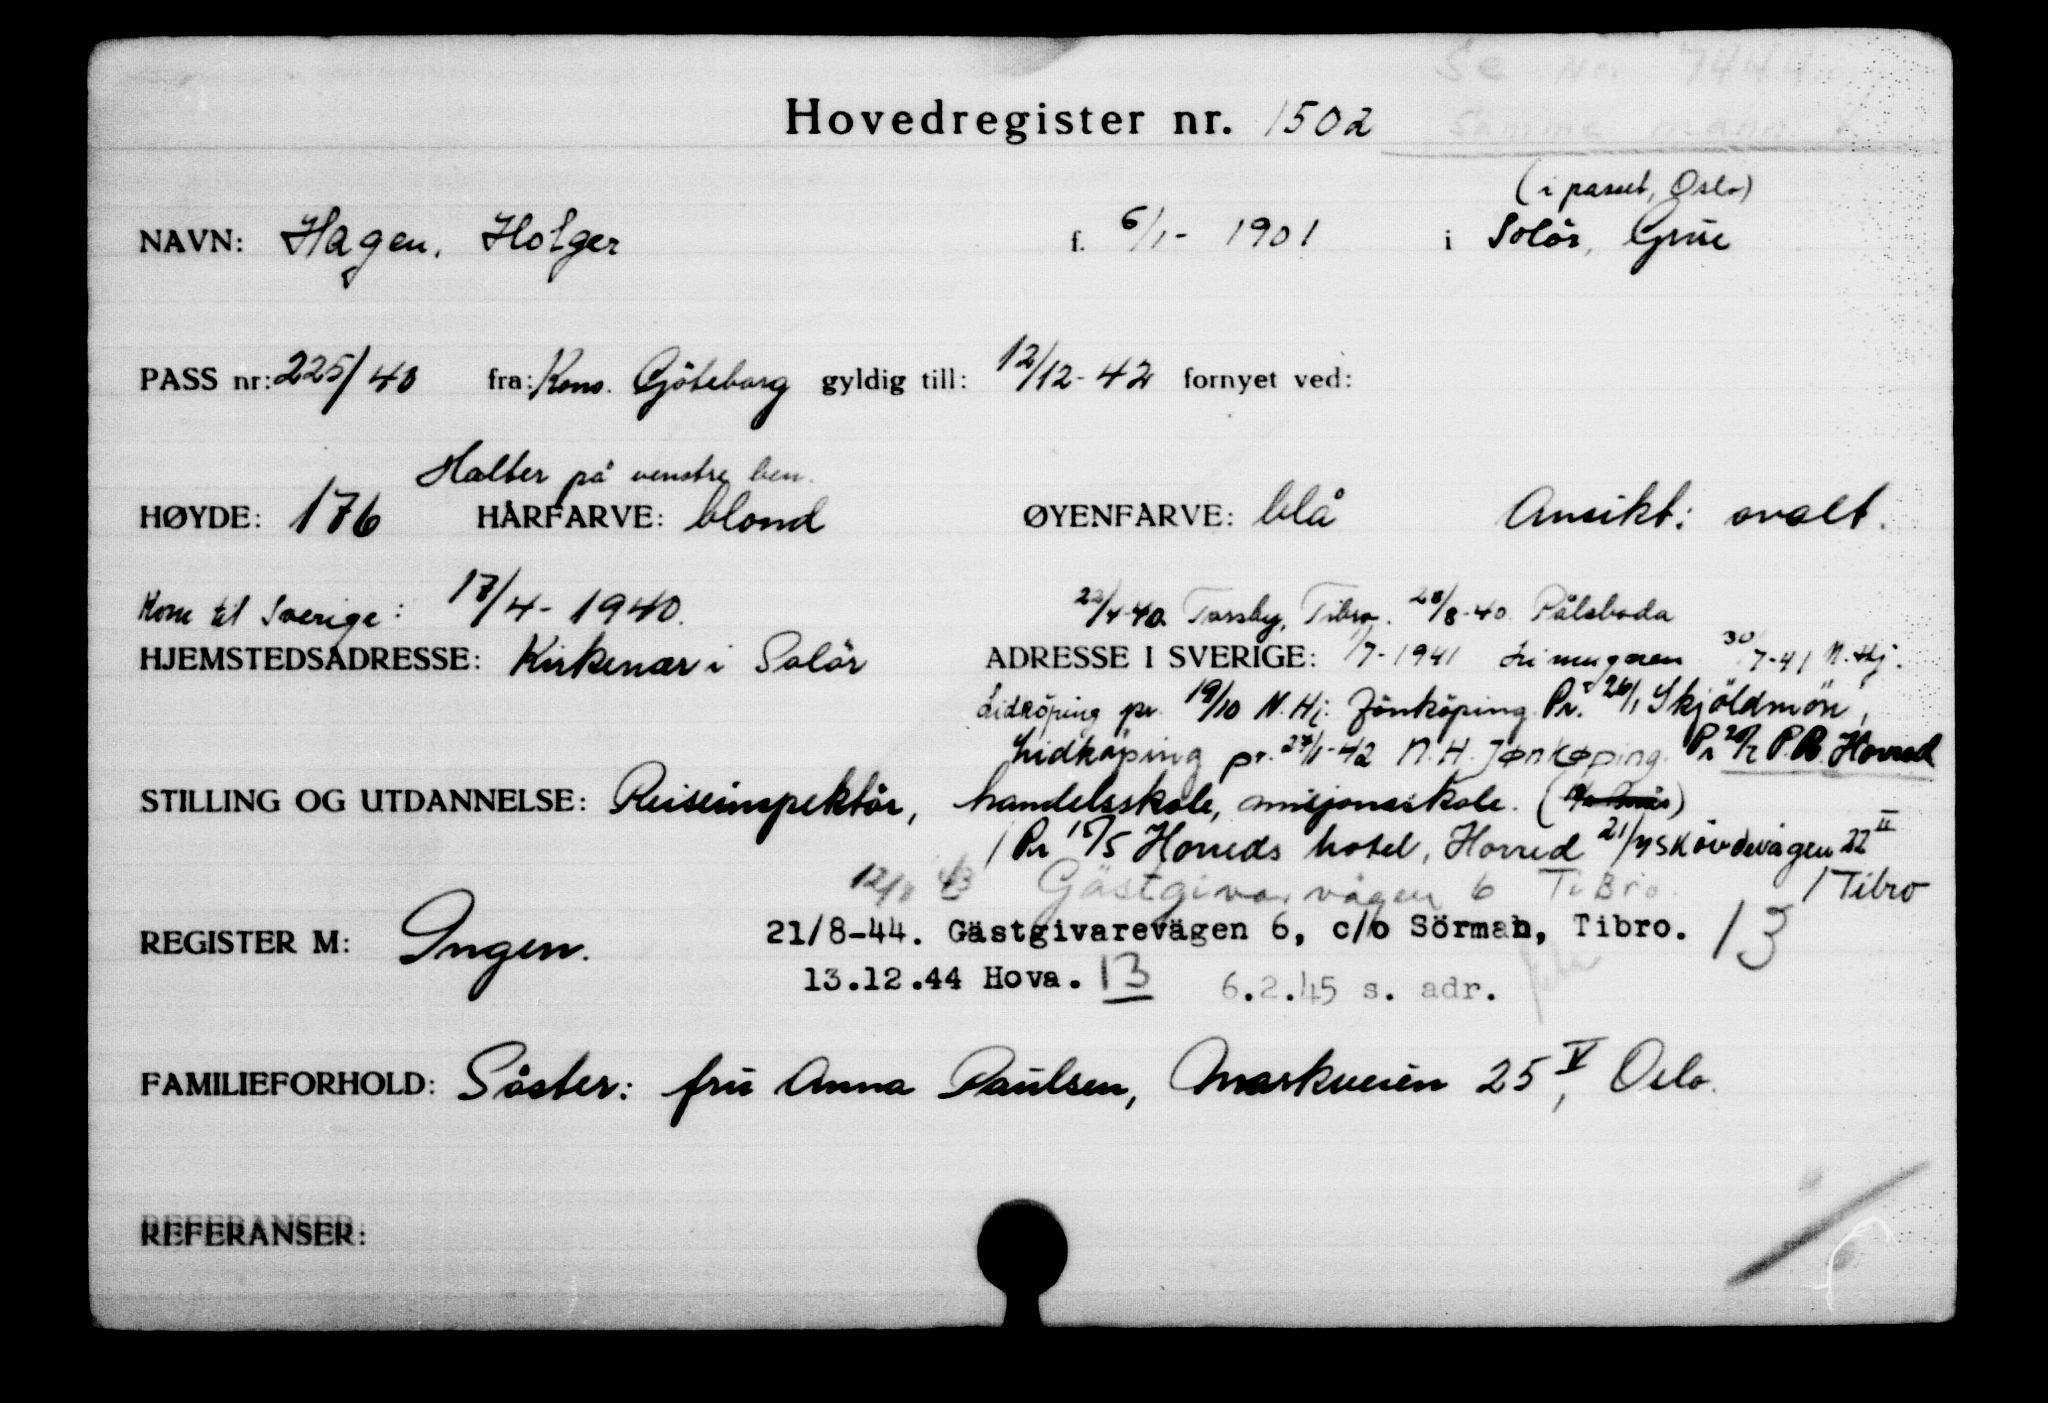 Se Nr. 7444
Hovedregister nr. 1502
samme mann
(i passet, Oslo)
NAVN: Hagen, Holger f. 6/1 - 1901 i Solör, Grue
PASS nr: 225/40 fra: Kons. Göteborg gyldig till: 12/12-42 fornyet ved:
Halter på venstre ben.
HØYDE: 176 HÅRFARVE: blond ØYENFARVE: blå Ansikt: ovalt.
Kom til Sverige: 17/4 - 1940. 22/4-40 Torsby, Tibro. 28/8-40 Pålsboda
HJEMSTEDSADRESSE: Kirkenær i Solör ADRESSE I SVERIGE: 1/7-1941 30/7-41 N.Hj.
Lidköping pr. 19/10 N.Hj. Jönköping. Pr. 26/1 Skjöldmön,
Lidköping pr. 27/1-42 N.H. Jønkøping. Pr 20/2 P.R. Horred
STILLING OG UTDANNELSE: Reiseinspektör, handelsskole, misjonsskole.
/ Pr 15/5 Horreds hotel, Horred 21/7 Skövdevägen 22 II
12/8 43 Gästgivarvägen 6 Tibro. / Tibro
REGISTER M: Ingen. 21/8-44. Gästgivarevägen 6, c/o Sörman, Tibro. 13
13.12.44 Hova. 13 6.2.45 s. adr.
FAMILIEFORHOLD: Söster: fru Anna Paulsen, Markveien 25, V Oslo.
REFERANSER: